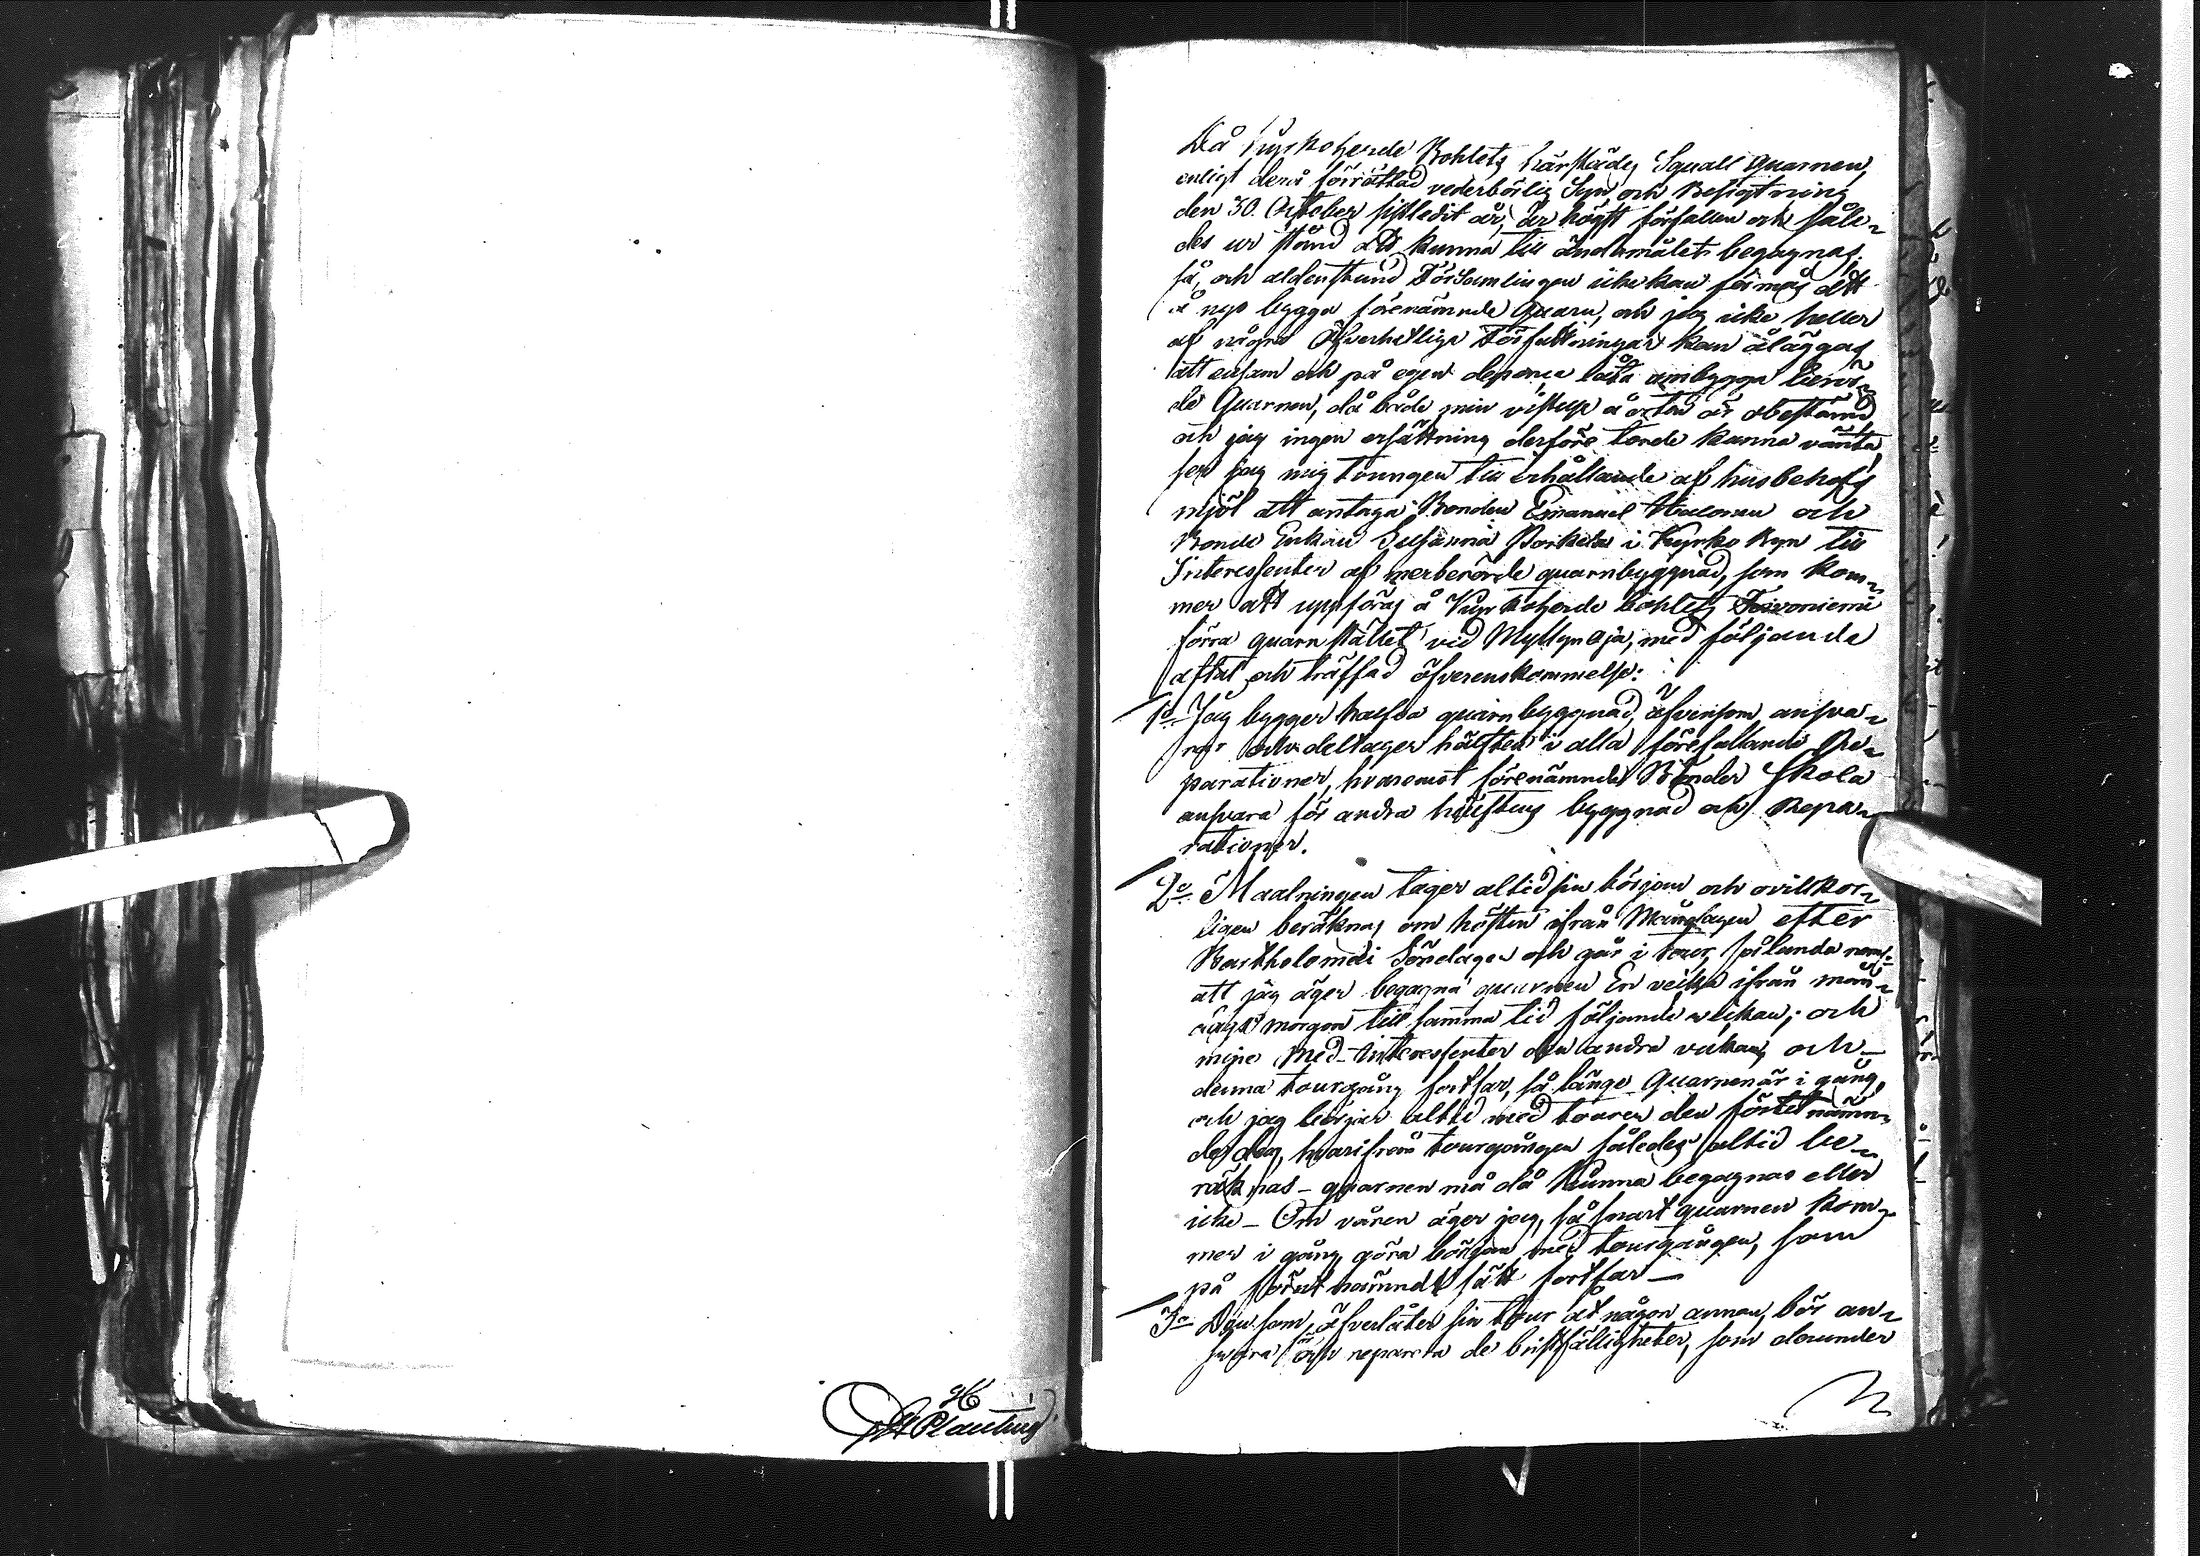 Då Kyrkoherde Bohlets härstädes Squalt Quarnen,
enligt derå förrättad vederbörlig Syn och Besigtning
den 30. October sistledit år, är högst förfallen och såle-
des ur stånd att kunna till ändamålet begagnas.
så, och aldenstund Församlingen icke kan förmås att
å nyo bygga förenämnde Quarn, och jag icke heller
af några Öfverhetliga Författningar kan åläggas
att ensam och på egen depence låta ombygga berör-
de Quarnen, då både min vistelse å orten är obestämd
och jag ingen ersättning derföre torde kunna vänta,
ser jag mig tvungen till erhållande af husbehofs
mjöl att antaga Bonden Emanuel och
Bonde Enkan Susanna i Kyrko Byn till
Interessenter af merberörde quarnbyggnad, som kom-
mer att uppföras å Kyrkoherde Bohlets Toivoniemi
förra quarnstället vid Myllynoja, med följande
aftal och träffad öfverenskommelse:
1o Jag bygger halfva quarnbyggnad, äfvensom ansva-
rar och deltager hälften i alla förefallande Re-
parationer, hvaremot förenämnde Bönder skola
ansvara för andra hälftens byggnad och Repa-
rationer.
2o Maalningen tager altid sin början och ovillkor-
ligen beräknas om hösten ifrån Måndagen efter
Bartholomäi Söndagen och går i tour sålunda neml.
att jag äger begagna quarnen En vecka ifrån mån-
dags morgon till samma tid följande veckan; och
mine Med-Interessenter den andra veckan, och
denna tourgång fortfar, så länge Quarnen är i gång,
och jag börjar altid med touren den förstnämn-
de dag, hvarifrån tourgången således altid be-
räknas – quarnen må då kunna begagnas eller
icke – Om våren äger jag, så snart quarnen kom-
mer i gång, göra början med tourgången, som
på förut nämndt sätt fortfar –
3o Den som öfverlåter sin tour åt någon annan, bör an-
svara för och reparera de bristfälligheter, som derunder